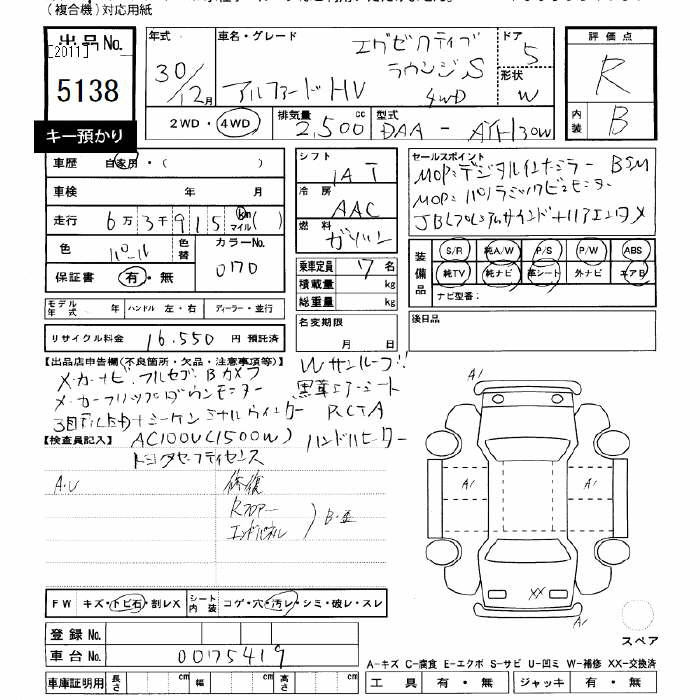 (複合機)対応用紙
出品No.
[2011]
5138
キー預かり
年式
30/12月
車名・グレード
エグゼクティブ
ラウンジS
アルファードHV 4WD
ドア
5
形状
W
評価点
R
内装
B
2WD・4WD
排気量
2,500 cc
型式
DAA - AYH30W
車歴 自家用・( )
車検 年 月
走行 6万3千915 km マイル( )
色 パール 色替 カラーNo. 070
保証書 有・無
モデル年式 年 ハンドル 左・右 ディーラー・並行
リサイクル料金 16,550 円 預託済
シフト
IAT
冷房
AAC
燃料
ガソリン
乗車定員 7名
積載量 kg
総重量 kg
名変期限
月 日
セールスポイント
MOP:デジタルインナーミラー BSM
MOP:パノラミックビューモニター
JBLプレミアムサウンド+リアエンタメ
装備品
S/R 純A/W P/S P/W ABS
純TV 純ナビ 革シート 外ナビ エアB
ナビ型番:
後日品
【出品店申告欄(不良箇所・欠品・注意事項等)】
Wサンルーフ!!
メーカーナビ フルセグ Bカメラ 黒革エアーシート
メーカーフリップダウンモニター
3眼LED+シーケンシャルウインカー RCTA
【検査員記入】
AC100V(1500W) ハンドルヒーター
トヨタセーフティセンス
A・U
修復
Rフロアー
エンドパネル
B・歪
FW キズ・トビ石・割レX シート内装 コゲ・穴・汚レ・シミ・破レ・スレ
登録No.
車台No. 0075419
車庫証明用 長さ cm 幅 cm 高さ cm
A1
A1
A1
XX
A1
スペア
A-キズ C-腐食 E-エクボ S-サビ U-凹ミ W-補修 XX-交換済
工具 有・無 ジャッキ 有・無